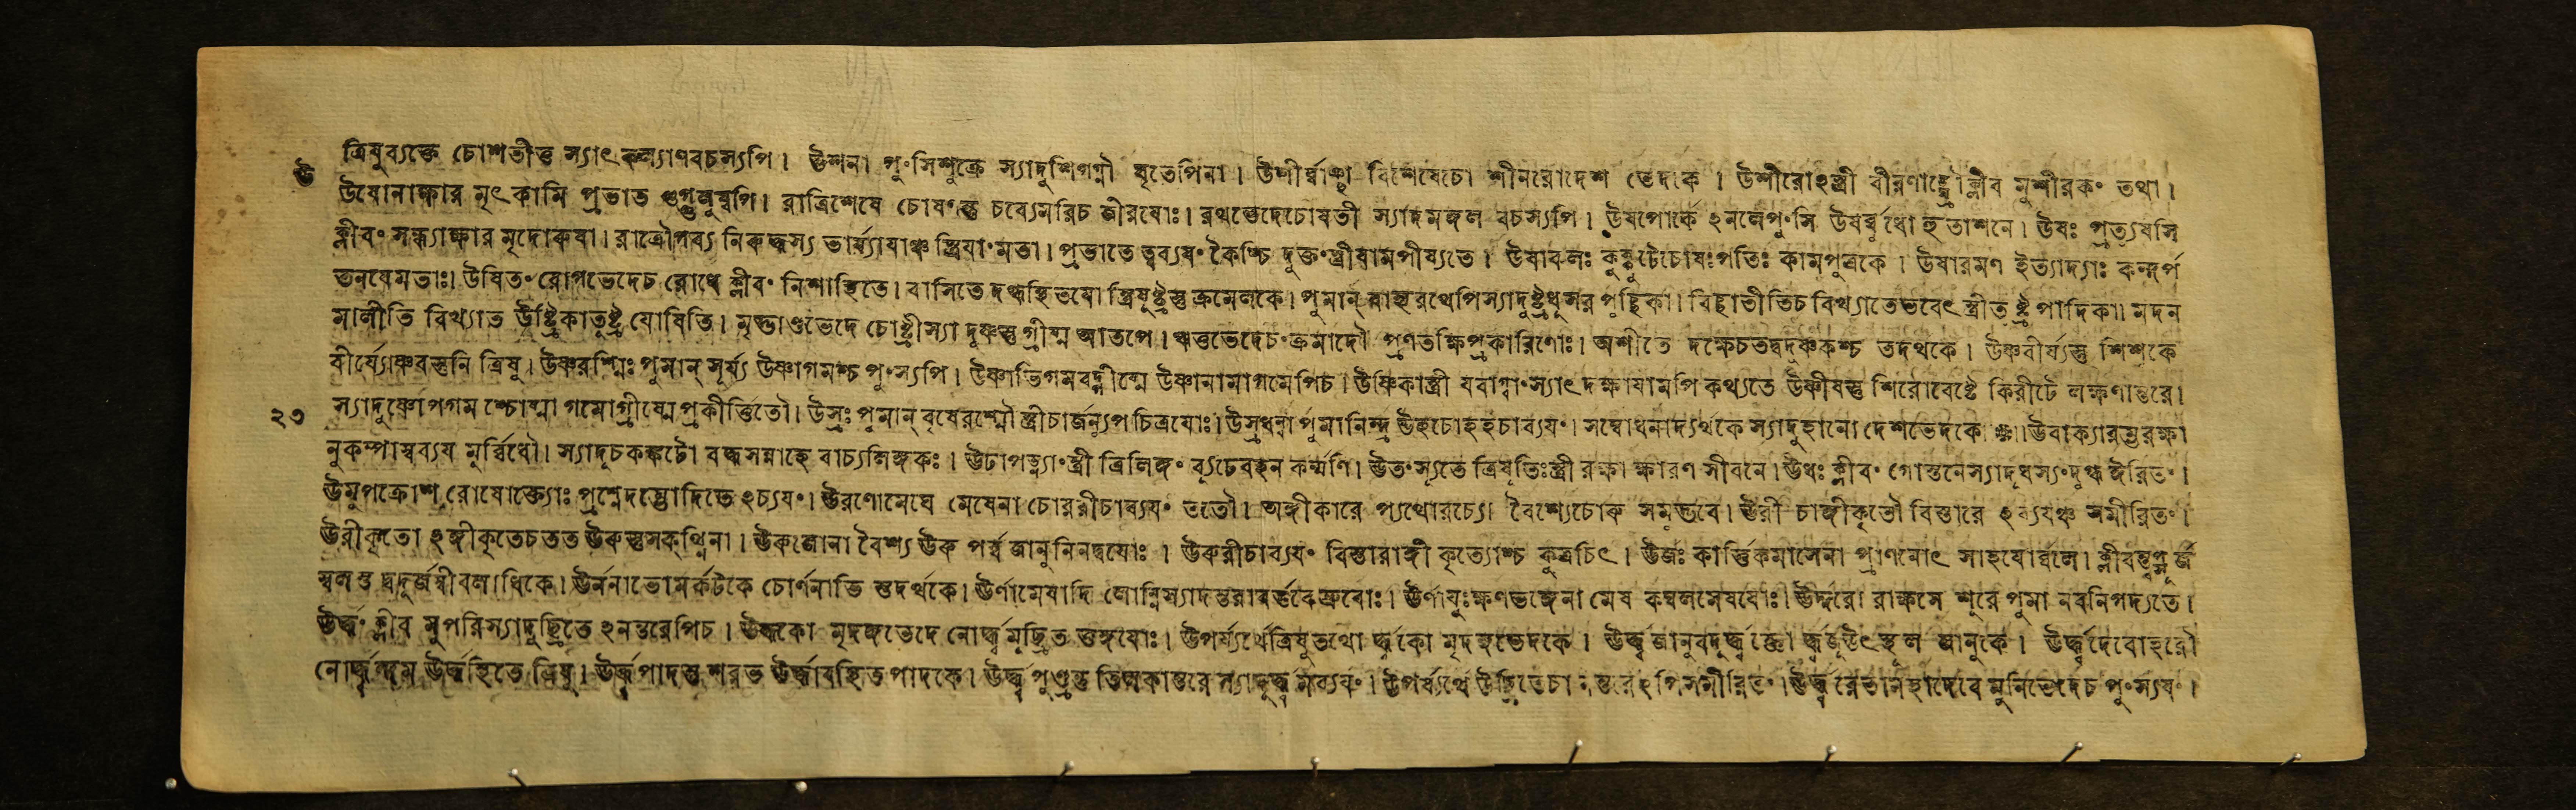 উ ত্রিষুব্যক্তে চোশতীতু স্যাৎকল্যাণবচস্যপি। ঊশনা পু॰সিশুক্রে স্যাদুশিগগ্নৌ ঘৃতেপিনা। উশীর্ব্বাঞ্ছা বিশেষেচো শীনরোদেশ ভেদকে। উশীরোঽস্ত্রী বীরণাঙ্ঘ্রৌক্লীব মুশীরকং তথা।
উষোনাক্ষার মৃৎকামি প্রভাত গুগ্গুলুষ্বপি। রাত্রিশেষে চোষ॰তু চব্যেমরিচ জীরযোঃ। রথভেদেচোষতী স্যাদমঙ্গল বচস্যপি। উষপোর্কে ঽনলেপু॰সি উষর্ব্বুধো হুতাশনে। ঊষঃ প্রত্যষসি
ক্লীব॰ সন্ধ্যাক্ষার মৃদোরুষা। রাত্রৌগব্য নিরুদ্ধস্য ভার্য্যাযাঞ্চ স্ত্রিযা॰মতা। প্রভাতে ত্বব্যয॰ কৈশ্চি দুক্ত॰স্ত্রীযামপীষ্যতে। উষাকলঃ কুক্কুটেচোষঃপতিঃ কামপুত্রকে। উষারমণ ইত্যাদ্যাঃ কন্দর্প
তনযেমতাঃ। উষিত॰ রোগভেদেচ রোধে ক্লীব॰ নিশাস্থিতে। বাসিতে দগ্ধস্থিতযো স্ত্রিষুষ্ট্রস্তু ক্রমেলকে। পুমান্ রথেপিস্যাদুষ্ট্রধুসর পুচ্ছিকা। বিছাতীতিচ বিখ্যাতেভবেৎ স্ত্রীতূষ্ট্র পাদিকা। মদন
মালীতি বিখ্যাত উষ্ট্রিকাতূষ্ট্র যোষিতি। মৃদ্ভাণ্ডভেদে চোষ্ট্রীস্যা দুষ্ণস্তু গ্রীষ্ম আতপে। ঋতুভেদেচ ক্রমাদৌ প্রণতক্ষিপ্রকারিণোঃ। অশীতে দক্ষেচতদ্বদুষ্ণকশ্চ তদর্থকে। উষ্ণবীর্য্যস্তু শিশুকে
বীর্য্যোষ্ণবস্তুনি ত্রিষু। উষ্ণরশ্মিঃ পুমান্ সূর্য্য উষ্ণাগমশ্চ পু॰স্যপি। উষ্ণাভিগমবদ্গ্রীষ্মে উষ্ণানামাগমেপিচ। উষ্ণিকাস্ত্রী যবাগ্বা॰স্যাৎ দক্ষাযামপি কথ্যতে উষ্ণীষস্তু শিরোবেষ্টে কিরীটে লক্ষণান্তরে।
২৩ স্যাদুষ্ণোপগম শ্চোষ্মা গমোগ্রীষ্মেপ্রকীর্ত্তিতৌ। উস্রঃ পুমান্ বৃষেরশ্মৌ স্ত্রীচার্জন্যুপচিত্রযোঃ। উস্রধন্বা পুমানিন্দ্র ঊহচোহহচাব্যয॰। সম্বোধনাদ্যর্থকে স্যাদুহানো দেশভেদকে। ঊবাক্যারম্ভরক্ষা
নুকম্পাস্বব্যয মুর্ব্বিধৌ। স্যাদূচকঙ্কটো বদ্ধসন্নাহে বাচ্যলিঙ্গকঃ। ঊঢাপত্ন্যা॰স্ত্রী ত্রিলিঙ্গ॰ ব্যূঢেবহন কর্ম্মণি। ঊত॰স্যূতে ত্রিষূতিঃস্ত্রী রক্ষা ক্ষারণ সীবনে। ঊধঃ ক্লীব॰ গোস্তনেস্যাদূধস্য॰দুগ্ধ ঈরিত॰।
ঊমুপক্রোশ রোষোক্ত্যোঃ প্রশ্নেদম্ভোদিতে ঽচ্যয॰। ঊরণোমেঘে মেষেনা চোররীচাব্যয॰ ততৌ। অঙ্গীকারে প্যথোরচ্যো বৈশ্যেচোরু সমুদ্ভবে। ঊরী চাঙ্গীকৃতৌ বিস্তারে ঽব্যযঞ্চ সমীরিত॰।
ঊরীকৃতো ঽঙ্গীকৃতেচতত ঊরুস্তুসক্থ্নিনা। ঊরুজোনা বৈশ্য ঊরু পর্ব্ব জানুনিনদ্বযোঃ। ঊরুরীচাব্যয॰ বিস্তারাঙ্গী কৃত্যোশ্চ কুত্রচিৎ। ঊর্জঃ কার্ত্তিকমাসেনা প্রাণনোৎ সাহযোর্ব্বলে। ক্লীবন্ত্বপ্ন্যূর্জ
স্বলস্তু দ্বদূর্জস্বীবলাধিকে। ঊর্ননাভোমর্কটকে চোর্ণনাভি স্তদর্থকে। ঊর্ণামেষাদি লোম্নিস্যাদন্তরাবর্ত্তকেভ্রুবোঃ। ঊর্ণাযুঃক্ষণভঙ্গেনা মেষ কম্বলমেষযোঃ। ঊর্দ্দরো রাক্ষসে শূরে পুমা নবনিগদ্যতে।
ঊর্দ্ধ॰ ক্লীব মুপরিস্যাদুচ্ছ্রিতে ঽনন্তরেপিচ। ঊর্দ্ধকো মৃদঙ্গভেদে নোর্দ্ধ্বমুচ্ছ্রিত তুঙ্গযোঃ। উপর্য্যর্থেত্রিষুতথো র্দ্ধ্বকো মৃদঙ্গভেদকে। ঊর্দ্ধ্বজানুবদূর্দ্ধ্বজ্ঞো র্দ্ধ্বজ্ঞুউৎস্থূল জানুকে। ঊর্দ্ধ্বদেবোহরৌ
নোর্দ্ধ্বন্দম ঊর্দ্ধস্থিতে ত্রিষু। ঊর্দ্ধ্বপাদস্তু শরভ ঊর্দ্ধাবস্থিত পাদকে। ঊর্দ্ধ্বপুণ্ড্রস্তু তিলকান্তরে স্যাদূর্দ্ধ্ব মব্যয॰। উপর্য্যর্থে উচ্ছ্রিতেচা নন্তরেঽপিসমীরিত॰। ঊর্দ্ধ্বরেতামহাদেবে মুনিভেদেচ পু॰স্যয॰।